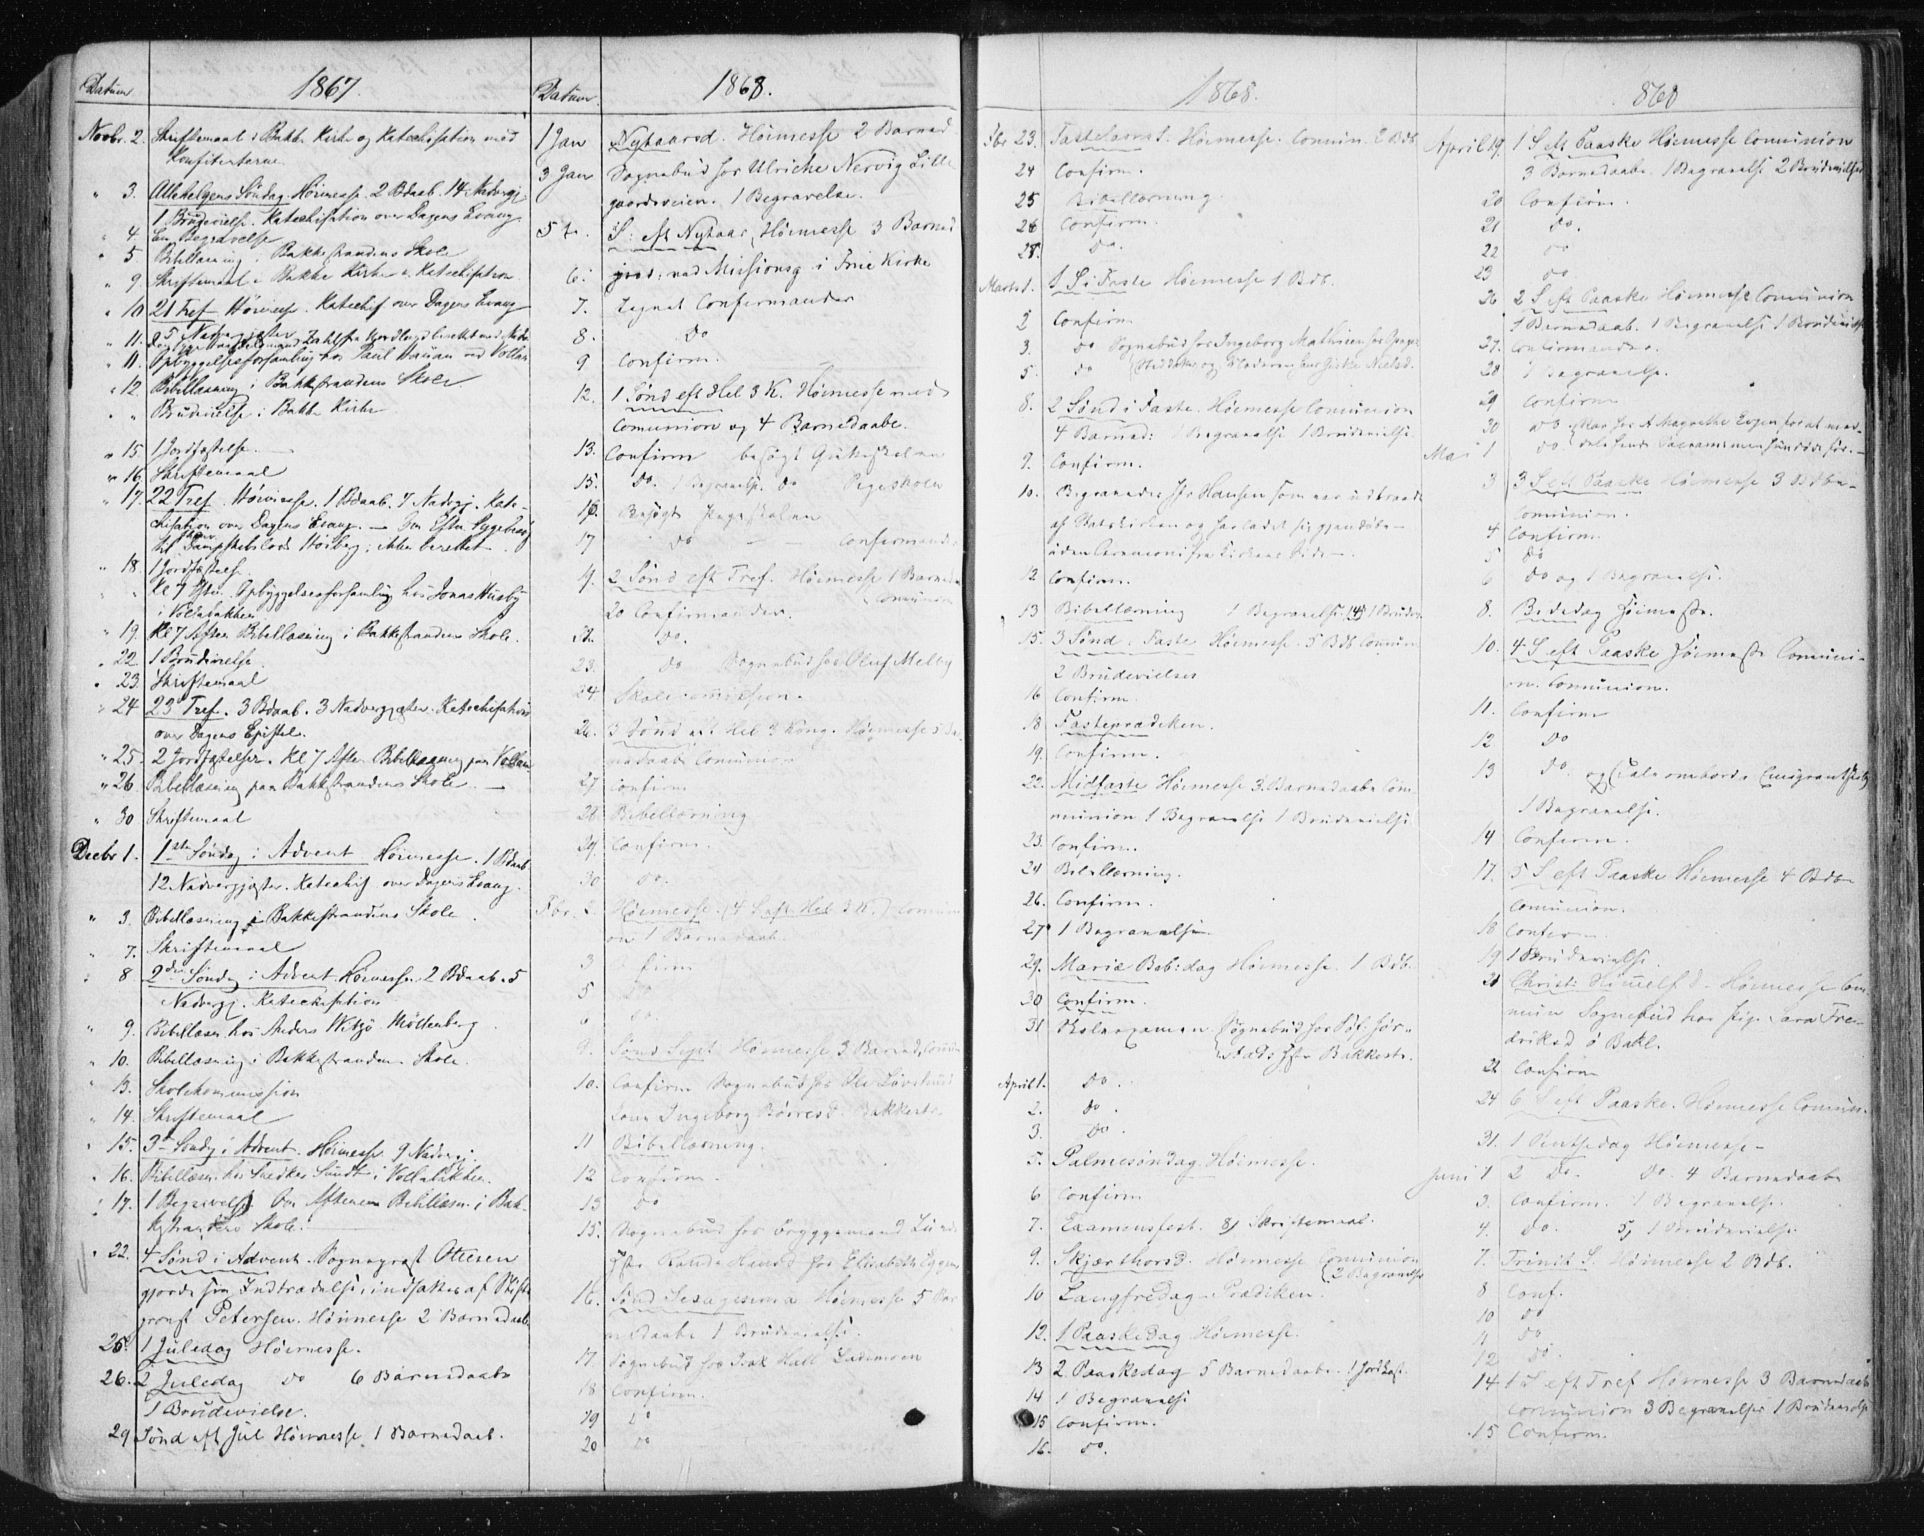 Datum 1867.
Novbr. 2. Skriftemaal i Bakke Kirke og Katechisation med
Konfitenterne
" 3. Allehelgens Søndag. Høimesse. 2 Bdaab. 14 Nadvergj.
1 Brudevielse. Katechisation over Dagens Evang.
" 4. En Begravelse
" 5. Bibellæsning i Bakkestrandens Skole
" 9. Skriftemaal i Bakke Kirke & Katechisation
" 10 21 Tref. Høimesse. Katechis. over Dagens Evang
5 Nadvergjæster
" 11. Opbyggelsesforsamling hos Paul Hanan ved Vollan
" 12. Bibellæsning i Bakkestrandens Skole
" " Brudevielse i Bakke Kirke
" 15. 1 Jordfæstelse.
" 16. Skriftemaal
" 17. 22 Tref. Høimesse. 1 Bdaab. 7 Nadvgj. Kate-
chisation over Dagens Evang. — Om Efterm. Sygebesøg
" 18. 1 Jordfæstelse
Kl 7 Aften Opbyggelsesforsamling hos Jonas Husby
i Voldabakken
" 19. Kl 7 Aften Bibellæsning i Bakkestrandens Skole.
" 22. 1 Brudevielse
" 23. Skriftemaal
" 24 23 Tref. 3 Bdaab. 3 Nadvergjæster. Katechisation
over Dagens Epistel.
" 25. 2 Jordfæstelser. Kl 7 Aften Bibellæsning paa Vollan
" 26. Bibellæsning paa Bakkestrandens Skole. —
" 30 Skriftemaal
Decbr 1. 1ste Søndag i Advent Høimesse. 1 Bdaab
12 Nadvergjæster. Katechis. over Dagens Evang.
" 3. Bibellæsning i Bakkestrandens Skole.
" 7. Skriftemaal
" 8 2den Søndag i Advent. Høimesse. 2 Bdaab. 5
Nadvergj. Katechisation
" 9. Bibellæsn. hos Anders Møllenberg
" 10. Bibellæsning i Bakkestrandens Skole.
" 13. Skolekommission
" 14. Skriftemaal
" 15. 3die Søndag i Advent. Høimesse. 9 Nadvergj.
" 16. Bibellæsn. hos Snedker Sundt i Voldabakken.
" 17. 1 Begravelse. Om Aftenen Bibellæsn. i Bak-
kestrandens Skole.
" 22. 4 Sønd i Advent. Sognepræst Ottesen
gjorde sin Indtrædelse, indsættes af Stifts
provst Petersen. Høimesse 2 Barnedaab
25. 1 Juledag Høimesse.
26. 2 Juledag do 6 Barnedaab
1 Brudevielse.
29 Sønd eft Jul Høimesse 1 Barnedaab.
Datum 1868.
1 Jan Nytaarsd. Høimesse 2 Barned
3 Jan Sognebud hos Ulriche Nervig Lille
gaardsveien. 1 Begravelse.
5 S. eft Nytaar, Høimesse 3 Barned
6. Missionsg i Frue Kirke
7. Tegnet Confirmander
8. do
9 Confirm.
12. 1 Sønd eft Hel 3 K. Høimesse med
Comunion og 4 Barnedaabe.
13. Confirm besøgt Gutteskolen
15. do. 1 Begravelse do Pigeskolen
16. Besøgt Pigeskolen
17 do — — Confirmand.
19. 2 Sønd eft Tref. Høimesse 1 Barneda
Comunion
20 Confirmander.
22. do.
23. do Sognebud hos Oluf Melby
24 Skolecomission.
26. 3 Sønd eft Hel 3 Kong. Høimesse 5 Bar
nedaabe Comunion
27 Confirm
28 Bibellæsning
29. Confirm.
30 do.
Fbr. 2. Høimesse (4 S eft Hel 3 K) Comuni
on 1 Barnedaab.
3 firm
5 do
6 do.
9. Sønd Sept. Høimesse 3 Barned, Comun
10. Confirm Sognebud hos
Ingeborg Børresd. Bakkestr.
11 Bibellæsning.
12 Confirm.
13 do
15. Sognebud hos Bryggemand
16. Sønd Sexagesima Høimesse 5 Bar
nedaabe 1 Brudevielse.
17. Sognebud hos Isak Hall Lademoen
18 Confirm.
19 do
20 do
1868.
Fbr 23. Fastelavns S. Høimesse. Comun. 2 Bdb.
24 Confirm.
25 Bibellæsning.
26 Confirm.
28. do.
Marts 1. 1 S i Faste Høimesse 1 Bdb.
2 Confirm
3. do Sognebud hos Ingeborg
5. do
8. 2 Sønd i Faste. Høimesse Comunion
4 Barned: 1 Begravelse 1 Brudevielse.
9. Confirm.
10. Begravedes Hansen som var udtraadt
af Statskirken og har ladet sig gjendøbe —
uden Ceremoni fra Kirkens Side —.
12 Confirm.
13 Bibellæsning 1 Begravelse
15. 3 Sønd i Faste Høimesse. 5 Bdb Comun
2 Brudevielser
16 Confirm.
18 Fasteprædiken.
19. Confirm.
22. Midfaste Høimesse 3 Barnedaabe Com-
munion 1 Begravelse 1 Brudevielse
23. Confirm.
24 Bibellæsning.
26. Confirm.
27 1 Begravelse
29. Mariæ Beb: dag Høimesse. 1 Bdb.
30 Confirm.
31 Skoleexamen. Sognebud hos
Bakkestr.
April 1. do.
2. do.
3. do.
5. Palmesøndag Høimesse.
6 Confirm
7. Examensfest. 8, Skriftemaal.
9. Skjærthorsd. Høimesse Comunion
2 Begravelser
10 Langfredag Prædiken.
12. 1 Paaskedag Høimesse.
13 2 Paaskedag 5 Barnedaabe. 1 Jordfæst.
14 1 Begravelse
15 Confirm.
16. do.
868
April 19. 1 S eft Paaske Høimesse Comunion
3 Barnedaabe. 1 Begravelse 2 Brudevielser
20 Confirm.
21 do.
22 do
23 do
26 2 S eft Paaske Høimesse Comunion
1 Barnedaab. 1 Begravelse 1 Brudevielse
27. Confirmander.
28 1 Begravelse.
29 Confirm
30 do
Mai 1 do
3 3 S eft Paaske Høimesse 3 Bdb
Comunion.
4 Confirm
5 do
6 do og 1 Begravelse.
8. Bededag Høimesse.
10. 4 S eft Paaske Høimesse Comuni-
on. Comunion.
11. Confirm
12 do
13 do. og Tale ombord i Emigrantskib
1 Begravelse.
14 Confirm.
17. 5 S eft Paaske Høimesse 4 Bdb
Comunion.
18 Confirm
19. 1 Brudevielse.
21 Christi Himelf d. Høimesse Com-
mun Sognebud hos Pige Sara Fre-
driksd ø Bakl.
22 Confirm
24 6 S eft Paaske. Høimesse Comun.
31. 1 Pintsedag Høimesse —
Juni 1 2 do. do. 4 Barnedaabe
3. Confirm. 1 Begravelse.
4. do. 5, 1 Brudevielse
7. Trinit S. Høimesse 2 Bdb.
8 Conf.
10 do
11 do.
12 do.
14 1 S eft Tref Høimesse 3 Barnedaab
Comunion 3 Begravelser 1 Brudevielse
15 Confirm.